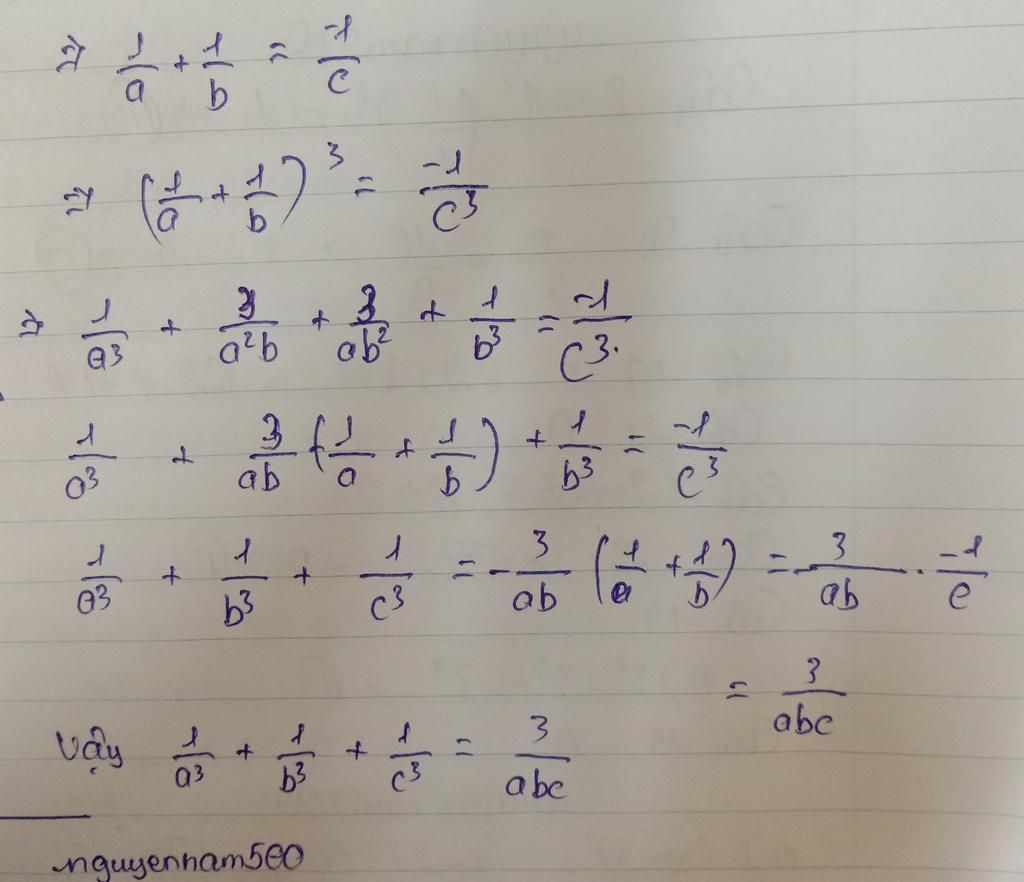 ⇒ 1/a + 1/b = -1/c
⇒ (1/a + 1/b)^3 = -1/c^3
⇒ 1/a^3 + 3/a^2b + 3/ab^2 + 1/b^3 = -1/c^3.
1/a^3 + 3/ab (1/a + 1/b) + 1/b^3 = -1/c^3
1/a^3 + 1/b^3 + 1/c^3 = -3/ab (1/a + 1/b) = -3/ab . -1/c
= 3/abc
Vậy 1/a^3 + 1/b^3 + 1/c^3 = 3/abc
nguyennam500